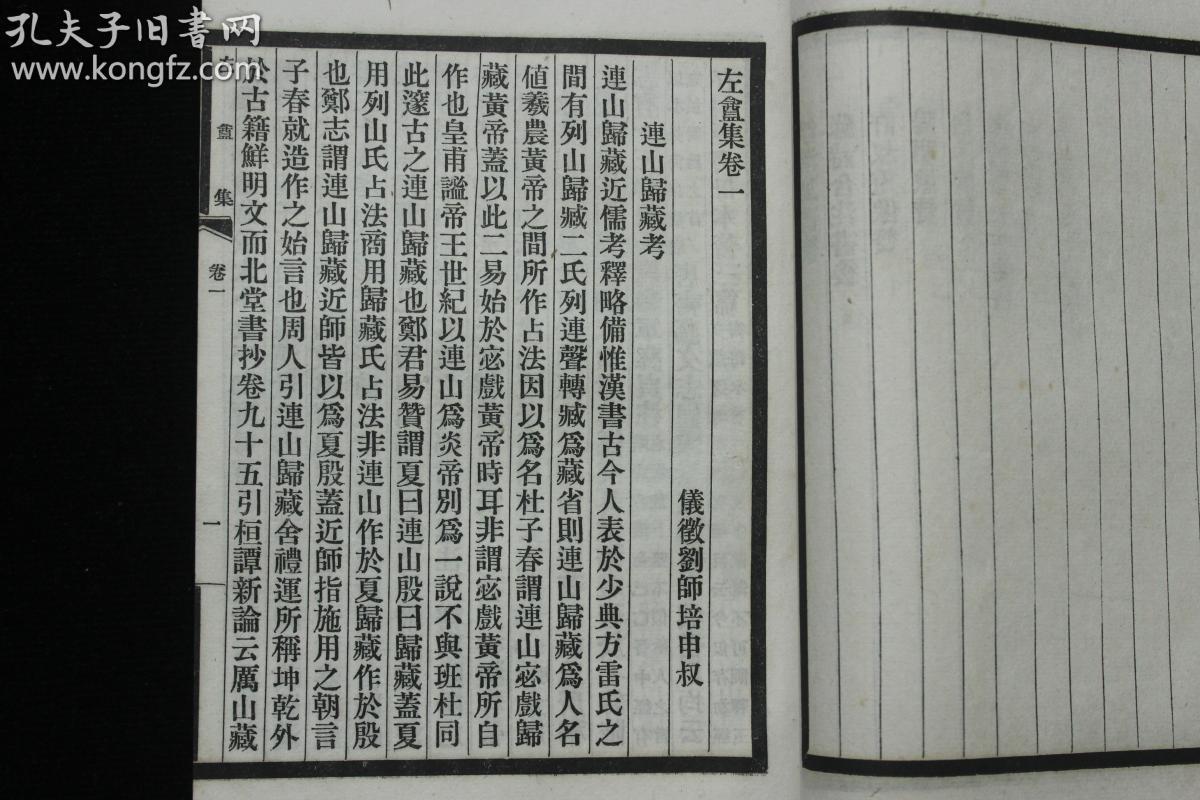 孔夫子旧书网
www.kongfz.com
左盦集卷一
儀徵劉師培申叔
連山歸藏考
連山歸藏近儒考釋略備惟漢書古今人表於少典方雷氏之
間有列山歸臧二氏列連聲轉臧爲藏省則連山歸藏爲人名
値羲農黃帝之間所作占法因以爲名杜子春謂連山宓戲歸
藏黃帝蓋以此二易始於宓戲黃帝時耳非謂宓戲黃帝所自
作也皇甫謐帝王世紀以連山爲炎帝別爲一說不與班杜同
此邃古之連山歸藏也鄭君易贊謂夏曰連山殷曰歸藏蓋夏
用列山氏占法商用歸藏氏占法非連山作於夏歸藏作於殷
也鄭志謂連山歸藏近師皆以爲夏殷蓋近師指施用之朝言
子春就造作之始言也周人引連山歸藏舍禮運所稱坤乾外
於古籍鮮明文而北堂書抄卷九十五引桓譚新論云厲山藏
盦集
卷一
一